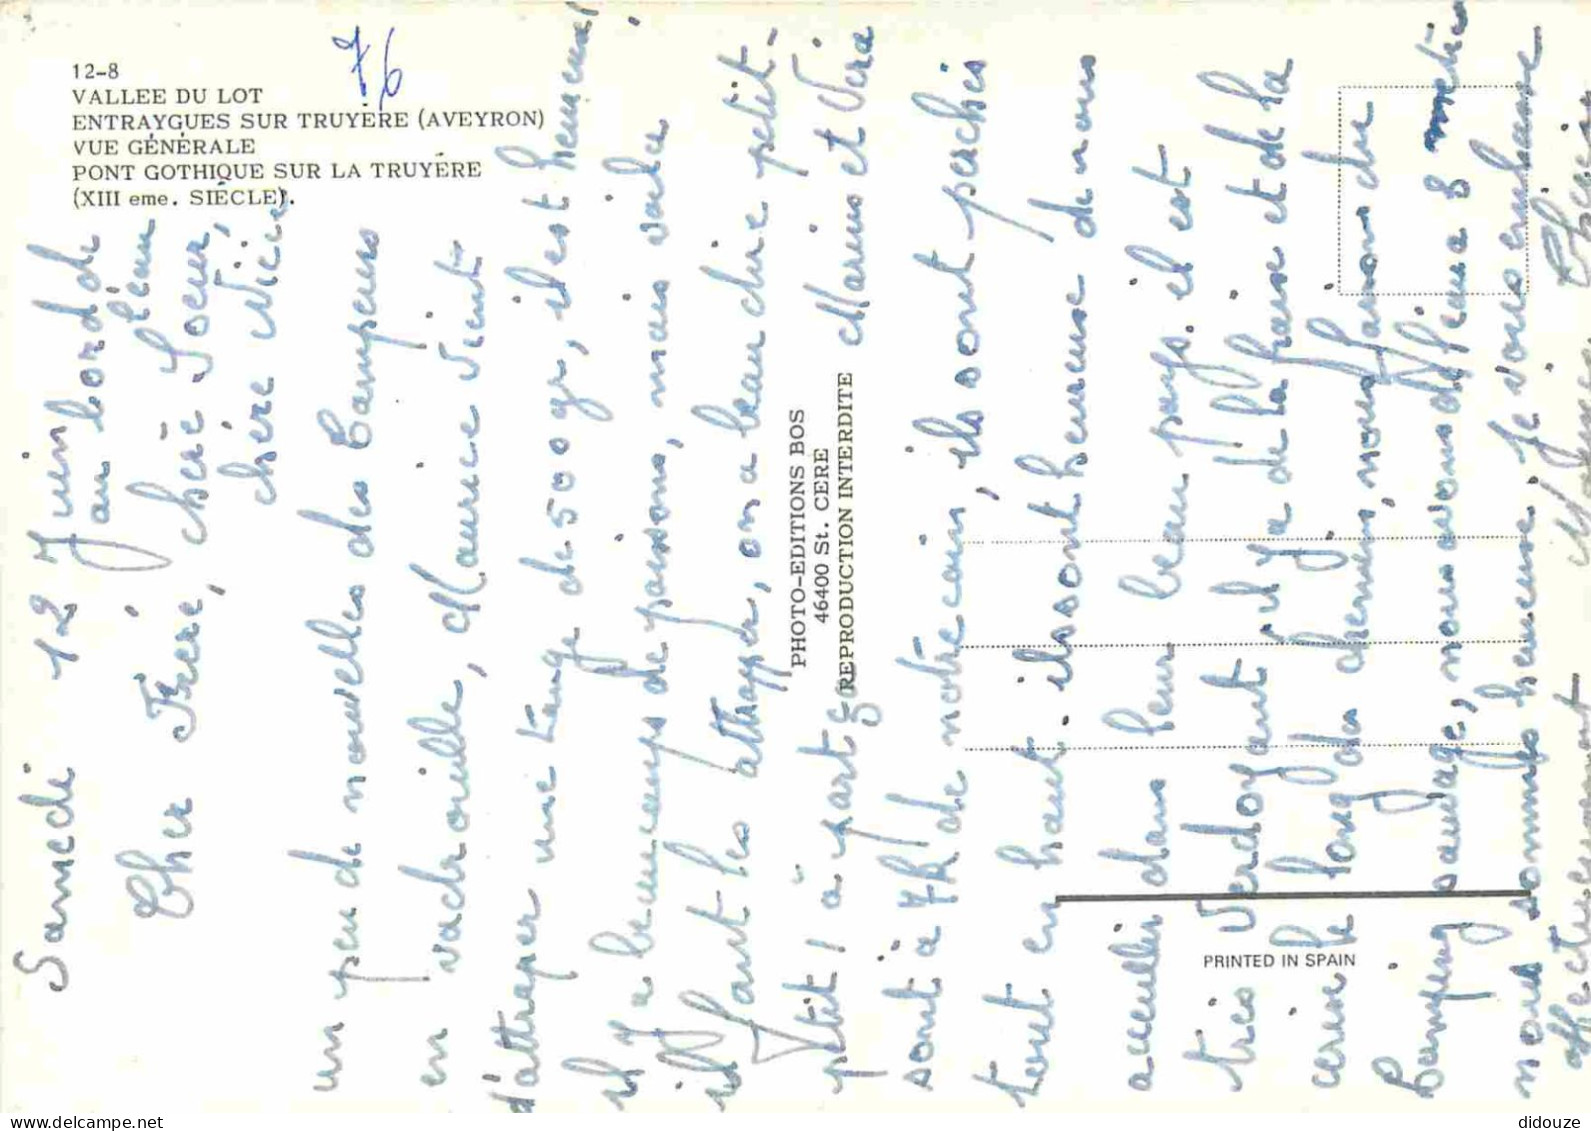 12-8
VALLEE DU LOT
ENTRAYGUES SUR TRUYÈRE (AVEYRON)
VUE GÉNÉRALE
PONT GOTHIQUE SUR LA TRUYÈRE
(XIII eme. SIÈCLE).
76
Samedi 12 Juin
au bord de
l'eau
Cher Frère, chère Soeur,
chère Nièce
un peu de nouvelles des Campeurs
en vadrouille, Maurice vient
d'attraper une tange de 500gr, il est heureux
il y a beaucoups de poissons, mais voila
il faut les attrapper, on a beau dire petit-
ptit, à part ça Marius et Vera
sont à 7K de notre coin, ils sont perchés
tout en haut. ils sont heureuse de nous
accueillir dans leur beau pays. il est
très verdoyant il y a de la fraise et de la
cerise le long des chemins, nous faisons du
Camping sauvage, nous avons l'eau a 8 mètres
nous sommes heureuse. Je vous embrasse
affectueusement
PHOTO-EDITIONS BOS
46400 St. CERE
REPRODUCTION INTERDITE
PRINTED IN SPAIN
didouze